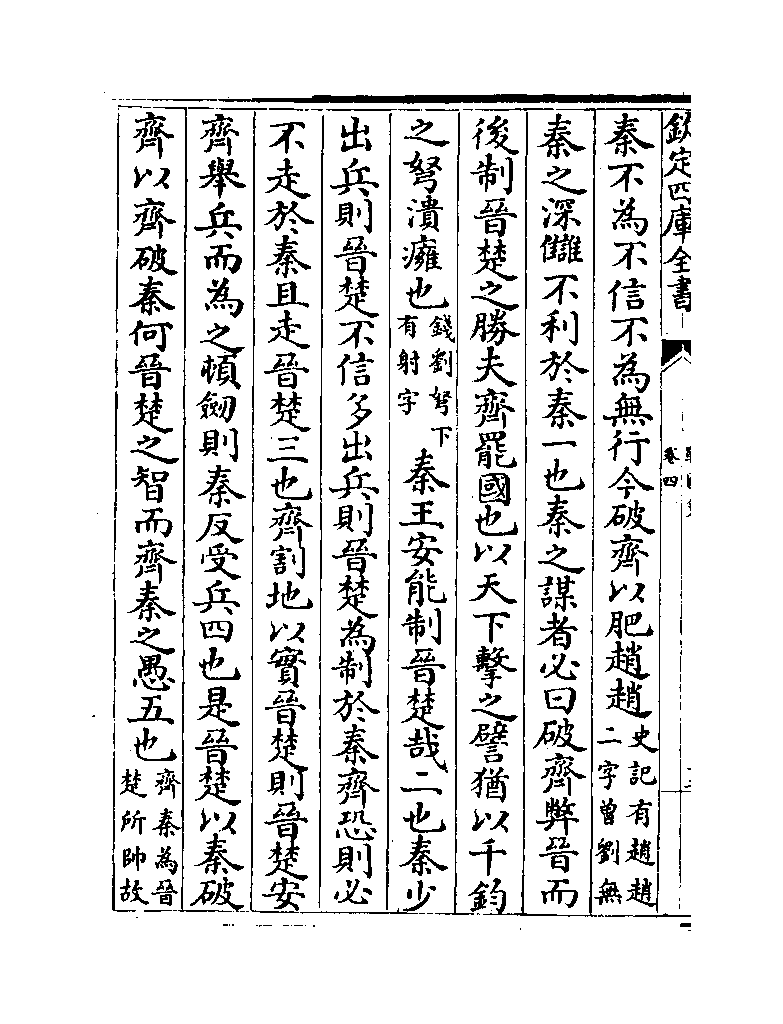 欽定四庫全書
卷四
秦不為不信不為無行今破齊以肥趙趙史記有趙趙二字曾劉無
秦之深讎不利於秦一也秦之謀者必曰破齊弊晉而
後制晉楚之勝夫齊罷國也以天下擊之譬猶以千鈞
之弩潰癕也錢劉弩下有射字秦王安能制晉楚哉二也秦少
出兵則晉楚不信多出兵則晉楚為制於秦齊恐則必
不走於秦且走晉楚三也齊割地以實晉楚則晉楚安
齊舉兵而為之頓劒則秦反受兵四也是晉楚以秦破
齊以齊破秦何晉楚之智而齊秦之愚五也齊秦為晉楚所帥故